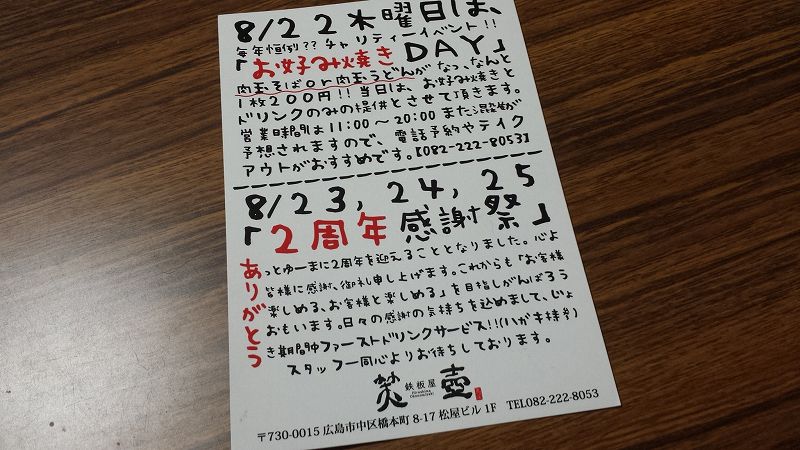 8/22木曜日は、
毎年恒例??チャリティーイベント!!
「お好み焼きDAY」
肉玉そばor肉玉うどんがなっ、なんと
1枚200円!!当日は、お好み焼きと
ドリンクのみの提供とさせて頂きます。
営業時間は11:00〜20:00また混雑が
予想されますので、電話予約やテイク
アウトがおすすめです。【082-222-8053】
8/23,24,25
「2周年感謝祭」
あっとゆーまに2周年を迎えることとなりました。心よ
り皆様に感謝、御礼申し上げます。これからも「お客様
が楽しめる、お客様と楽しめる」を目指しがんばろう
とおもいます。日々の感謝の気持ちを込めまして、じょ
うき期間中ファーストドリンクサービス!!(ハガキ持参)
スタッフ一同心よりお待ちしております。
鉄板屋
笑壷
〒730-0015 広島市中区橋本町 8-17 松屋ビル 1F TEL082-222-8053